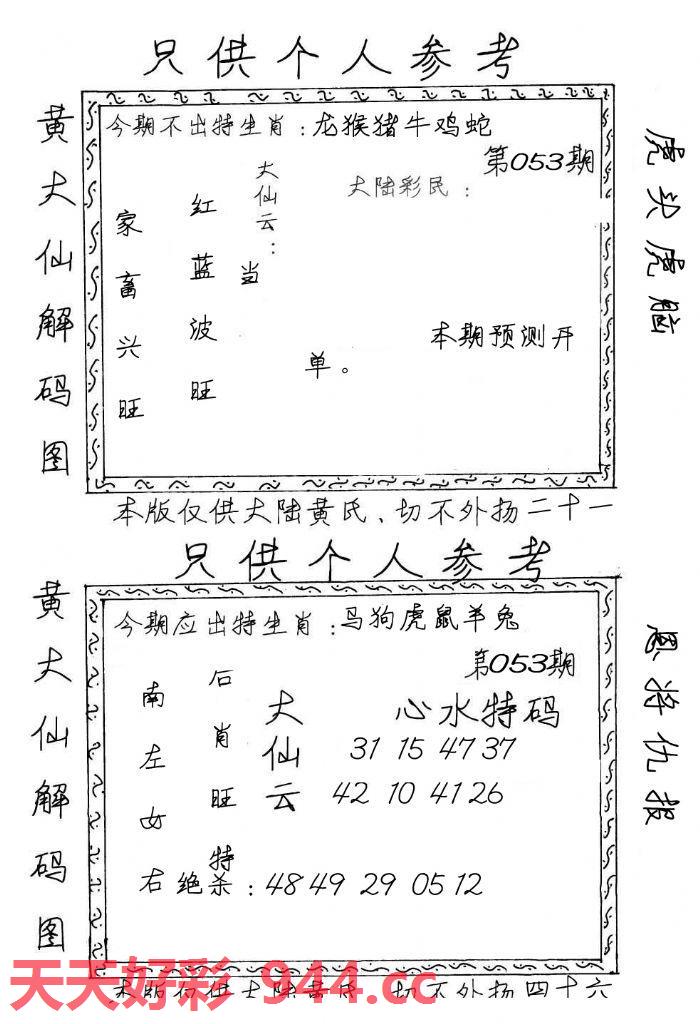 只供个人参考
黄大仙解码图
今期不出特生肖：龙猴猪牛鸡蛇
第053期
大仙云：
大陆彩民：
红蓝波旺
家畜兴旺
当
本期预测开
单。
虎头虎脑
本版仅供大陆黄氏、切不外扬二十一
只供个人参考
黄大仙解码图
今期应出特生肖：马狗虎鼠羊兔
第053期
南左女右
后肖旺特
大仙云
心水特码
31 15 47 37
42 10 41 26
绝杀：48 49 29 05 12
恩将仇报
本版仅供大陆黄氏 切不外扬四十六
天天好彩 944.cc